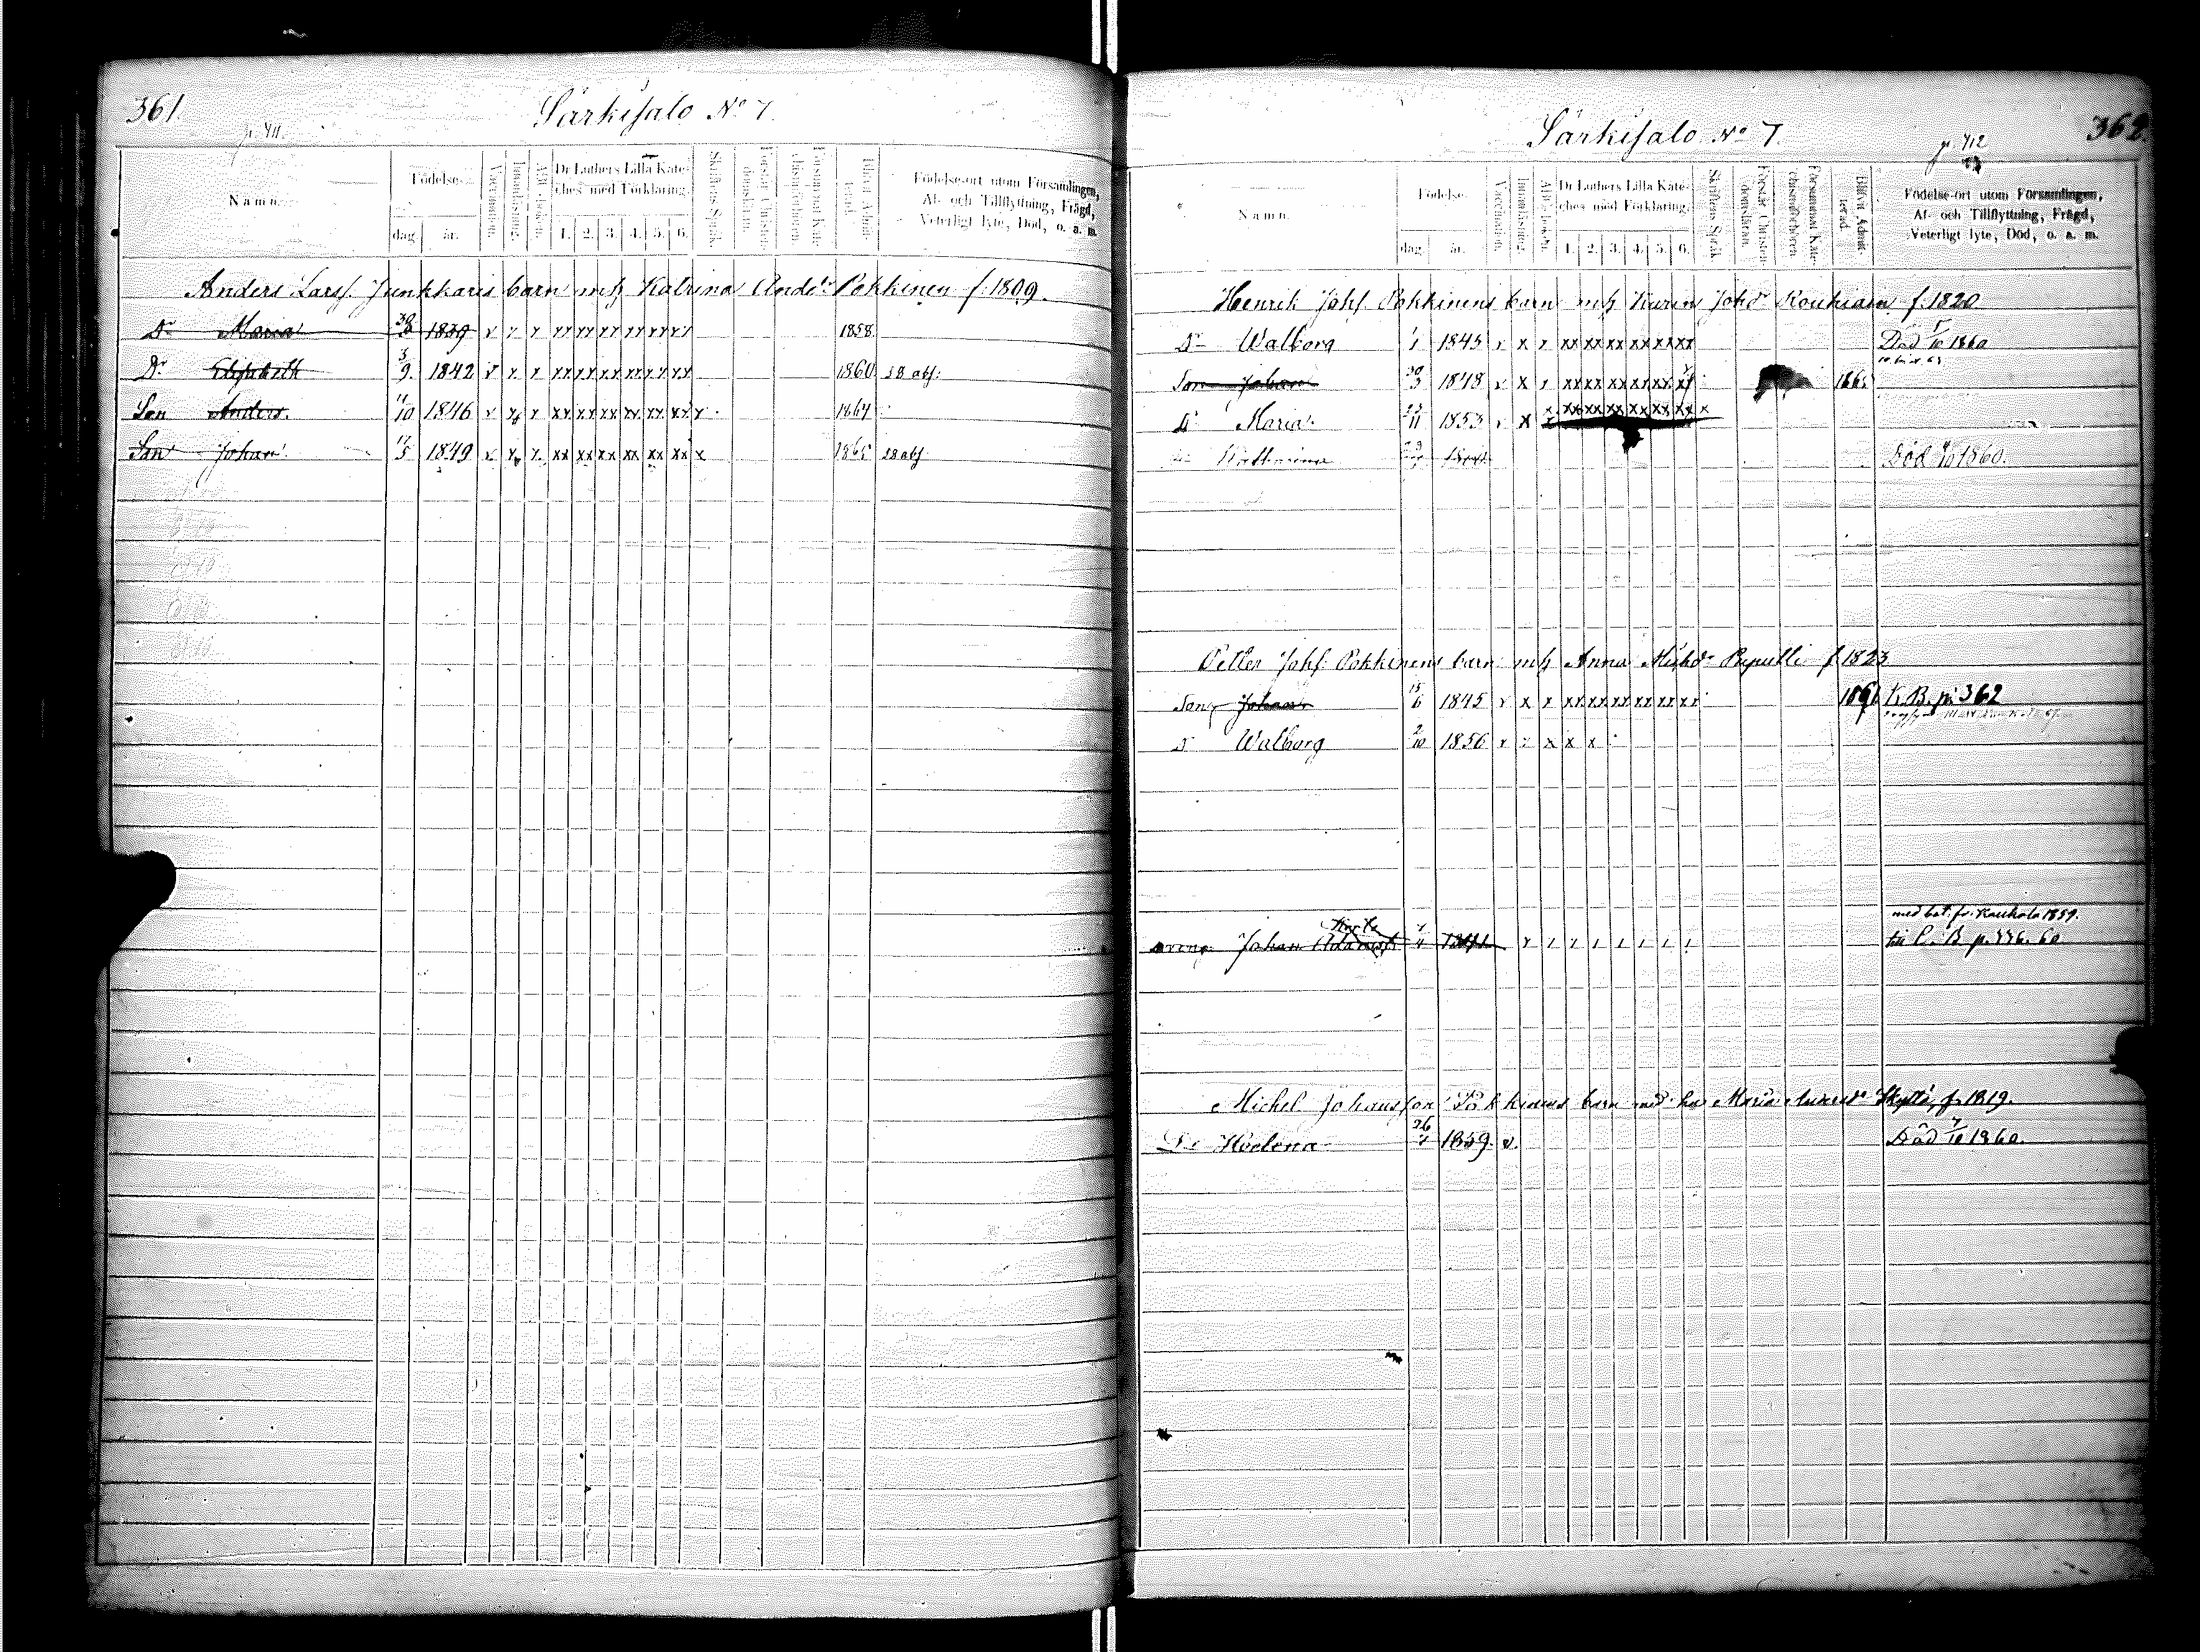 361.
Särkisalo No 7.
Namn.
Födelse.
dag.
år.
Vaccination.
Innanläsning.
A.B.C. boken.
Dr Luthers Lilla Kate-
ches med Förklaring.
1. 2. 3. 4. 5. 6.
Skriftens Språk.
Förstår Christen-
domsläran.
Försummat Kate-
chismiförhören.
Blifvit Admit-
terad.
Födelse-ort utom Församlingen,
Af- och Tillflyttning, Frägd,
Veterligt lyte, Död, o. a. m.
Anders Larss. Junkkaris barn m/h Katrina Andsdr Pokkinen f. 1809.
Dr Maria 30/3 1839 x x x xx xx xx xx xx xx 1858.
Dr Elisabeth 3/9. 1842 x x x xx xx xx xx xx xx 1860
Son Anders. 11/10 1846 x x x xx xx xx xx xx xx x 1864
Son Johan 17/5 1849 x x x xx xx xx xx xx xx x 1865
362
Särkisalo No 7.
p. 412
Namn.
Födelse.
dag.
år.
Vaccination.
Innanläsning.
A.B.C. boken.
Dr Luthers Lilla Kate-
ches med Förklaring.
1. 2. 3. 4. 5. 6.
Skriftens Språk.
Förstår Christen-
domsläran.
Försummat Kate-
chismiförhören.
Blifvit Admit-
terad.
Födelse-ort utom Församlingen,
Af- och Tillflyttning, Frägd,
Veterligt lyte, Död, o. a. m.
Henrik Johs. Pokkinens barn m/h Karin Johdr Roukiain f. 1820
Dr Walborg 1/1 1845 x x x xx xx xx xx xx xx Död 1860
Son Johan 3 1848 x x x xx xx xx xx xx xx
Dr Maria 11 1853 x x x xx xx xx xx xx xx x
Katharina Död 1860.
Petter Johs. Pokkinens barn m/h Anna Michdr Peputti f. 1823
Son Johan 15/6 1845 x x x xx xx xx xx xx xx K. B. p. 362
D Walborg 2/10 1856 x x x x x
med bet. fr. Kaukola 1859.
Dreng Johan Adamss. till C. B. p. 60
Michel Johansson Pokkinens barn med hu Maria Skyttä, f. 1819.
Dr Heelena 26 1859. v. Död 1860.